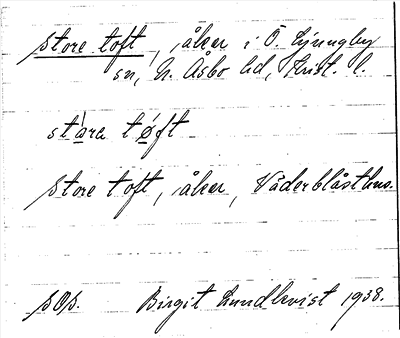 store toft, åker i Ö. Ljungby
sn, N. Åsbo hd, Krist. l.
ståra tøft
store toft, åker, Väderblåsthus.
Birgit Lundkvist 1938.